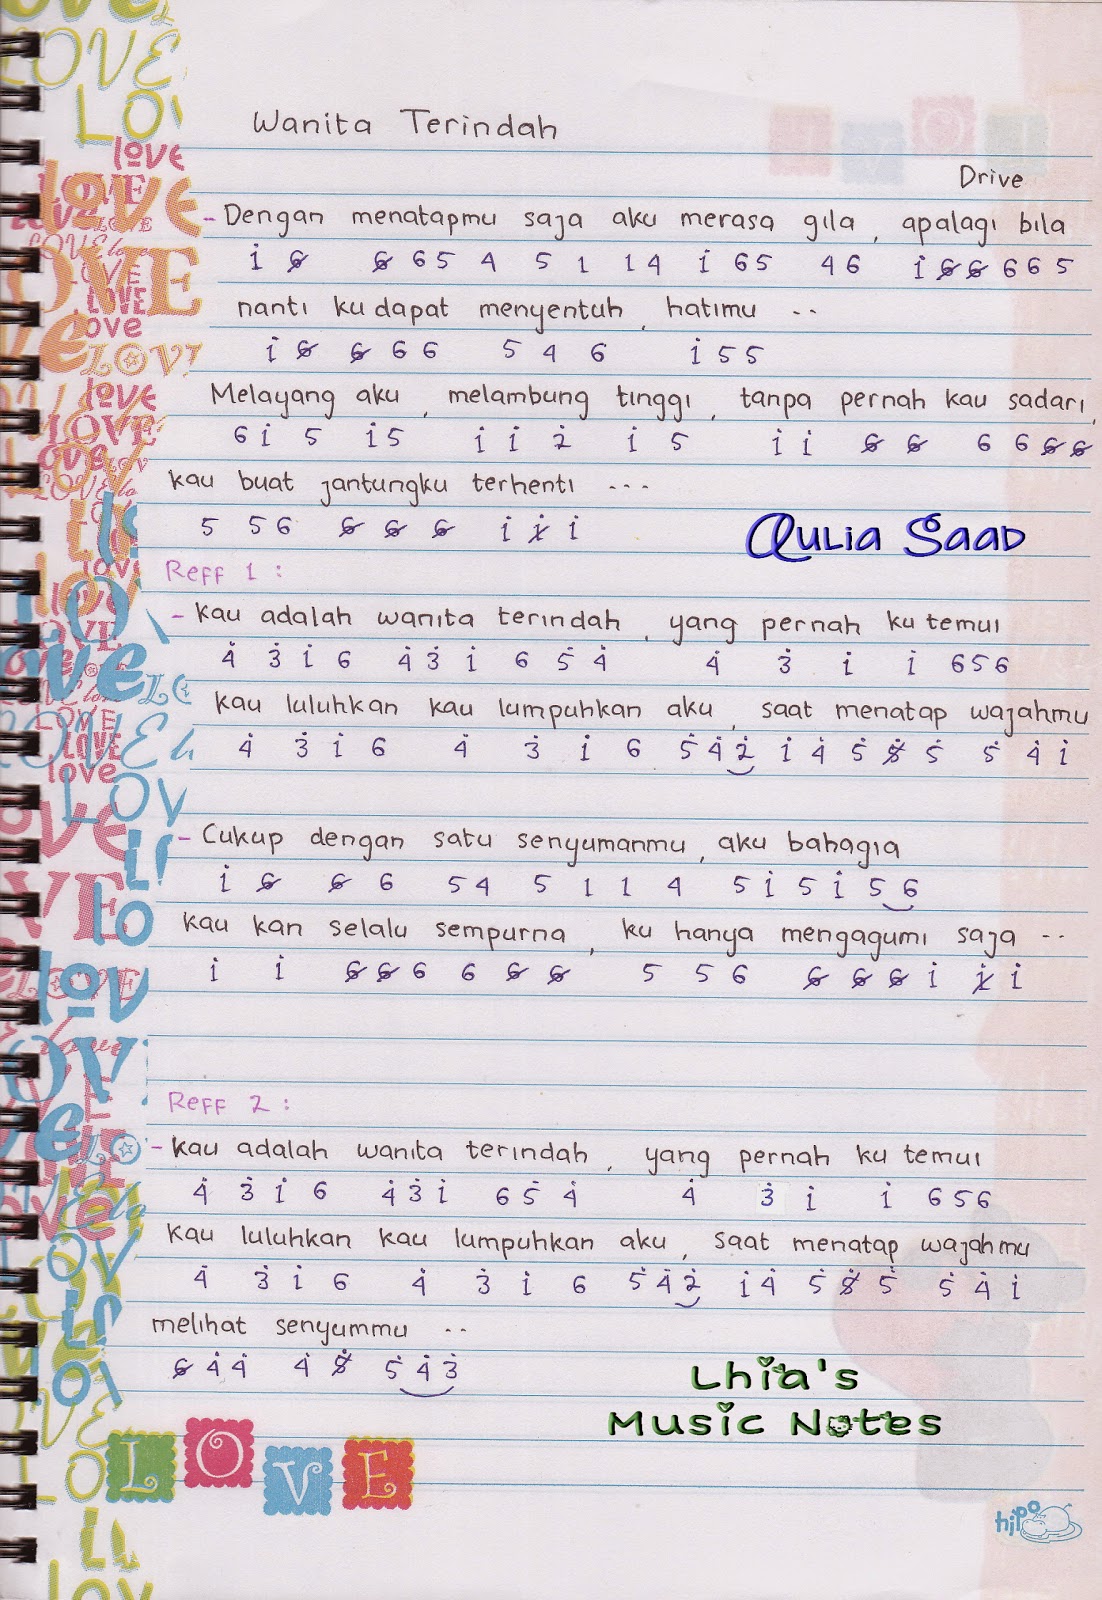 Wanita Terindah
Drive
- Dengan menatapmu saja aku merasa gila , apalagi bila
i 6̸ 6̸ 6 5 4 5 1 1 4 i 6 5 4 6 i 6̸ 6̸ 6 6 5
nanti ku dapat menyentuh , hatimu --
i 6̸ 6̸ 6 6 5 4 6 i 5 5
Melayang aku , melambung tinggi , tanpa pernah kau sadari,
6 i 5 i 5 i i 2̇ i 5 i i 6̸ 6̸ 6 6 6̸ 6̸
kau buat jantungku terhenti ---
5 5 6 6̸ 6̸ 6̸ i i̸ i
Aulia Saad
Reff 1 :
- Kau adalah wanita terindah , yang pernah ku temui
4̇ 3̇ i 6 4̇ 3̇ i 6 5̇ 4̇ 4̇ 3̇ i i 6 5 6
kau luluhkan kau lumpuhkan aku , saat menatap wajahmu
4̇ 3̇ i 6 4̇ 3̇ i 6 5̇ 4̇ 2̇ i 4̇ 5̇ 5̸̇ 5̇ 5̇ 4̇ i
- Cukup dengan satu senyumanmu , aku bahagia
i 6̸ 6̸ 6 5 4 5 1 1 4 5 i 5 i 5 6
kau kan selalu sempurna , ku hanya mengagumi saja --
i i 6̸ 6̸ 6 6 6̸ 6̸ 5 5 6 6̸ 6̸ 6̸ i i̸ i
Reff 2 :
- Kau adalah wanita terindah , yang pernah ku temui
4̇ 3̇ i 6 4̇ 3̇ i 6 5̇ 4̇ 4̇ 3̇ i i 6 5 6
kau luluhkan kau lumpuhkan aku , saat menatap wajahmu
4̇ 3̇ i 6 4̇ 3̇ i 6 5̇ 4̇ 2̇ i 4̇ 5̇ 5̸̇ 5̇ 5̇ 4̇ i
melihat senyummu --
6̸ 4̇ 4̇ 4̇ 5̸̇ 5̇ 4̇ 3̇
Lhia's
Music Notes
LOVE
hipo